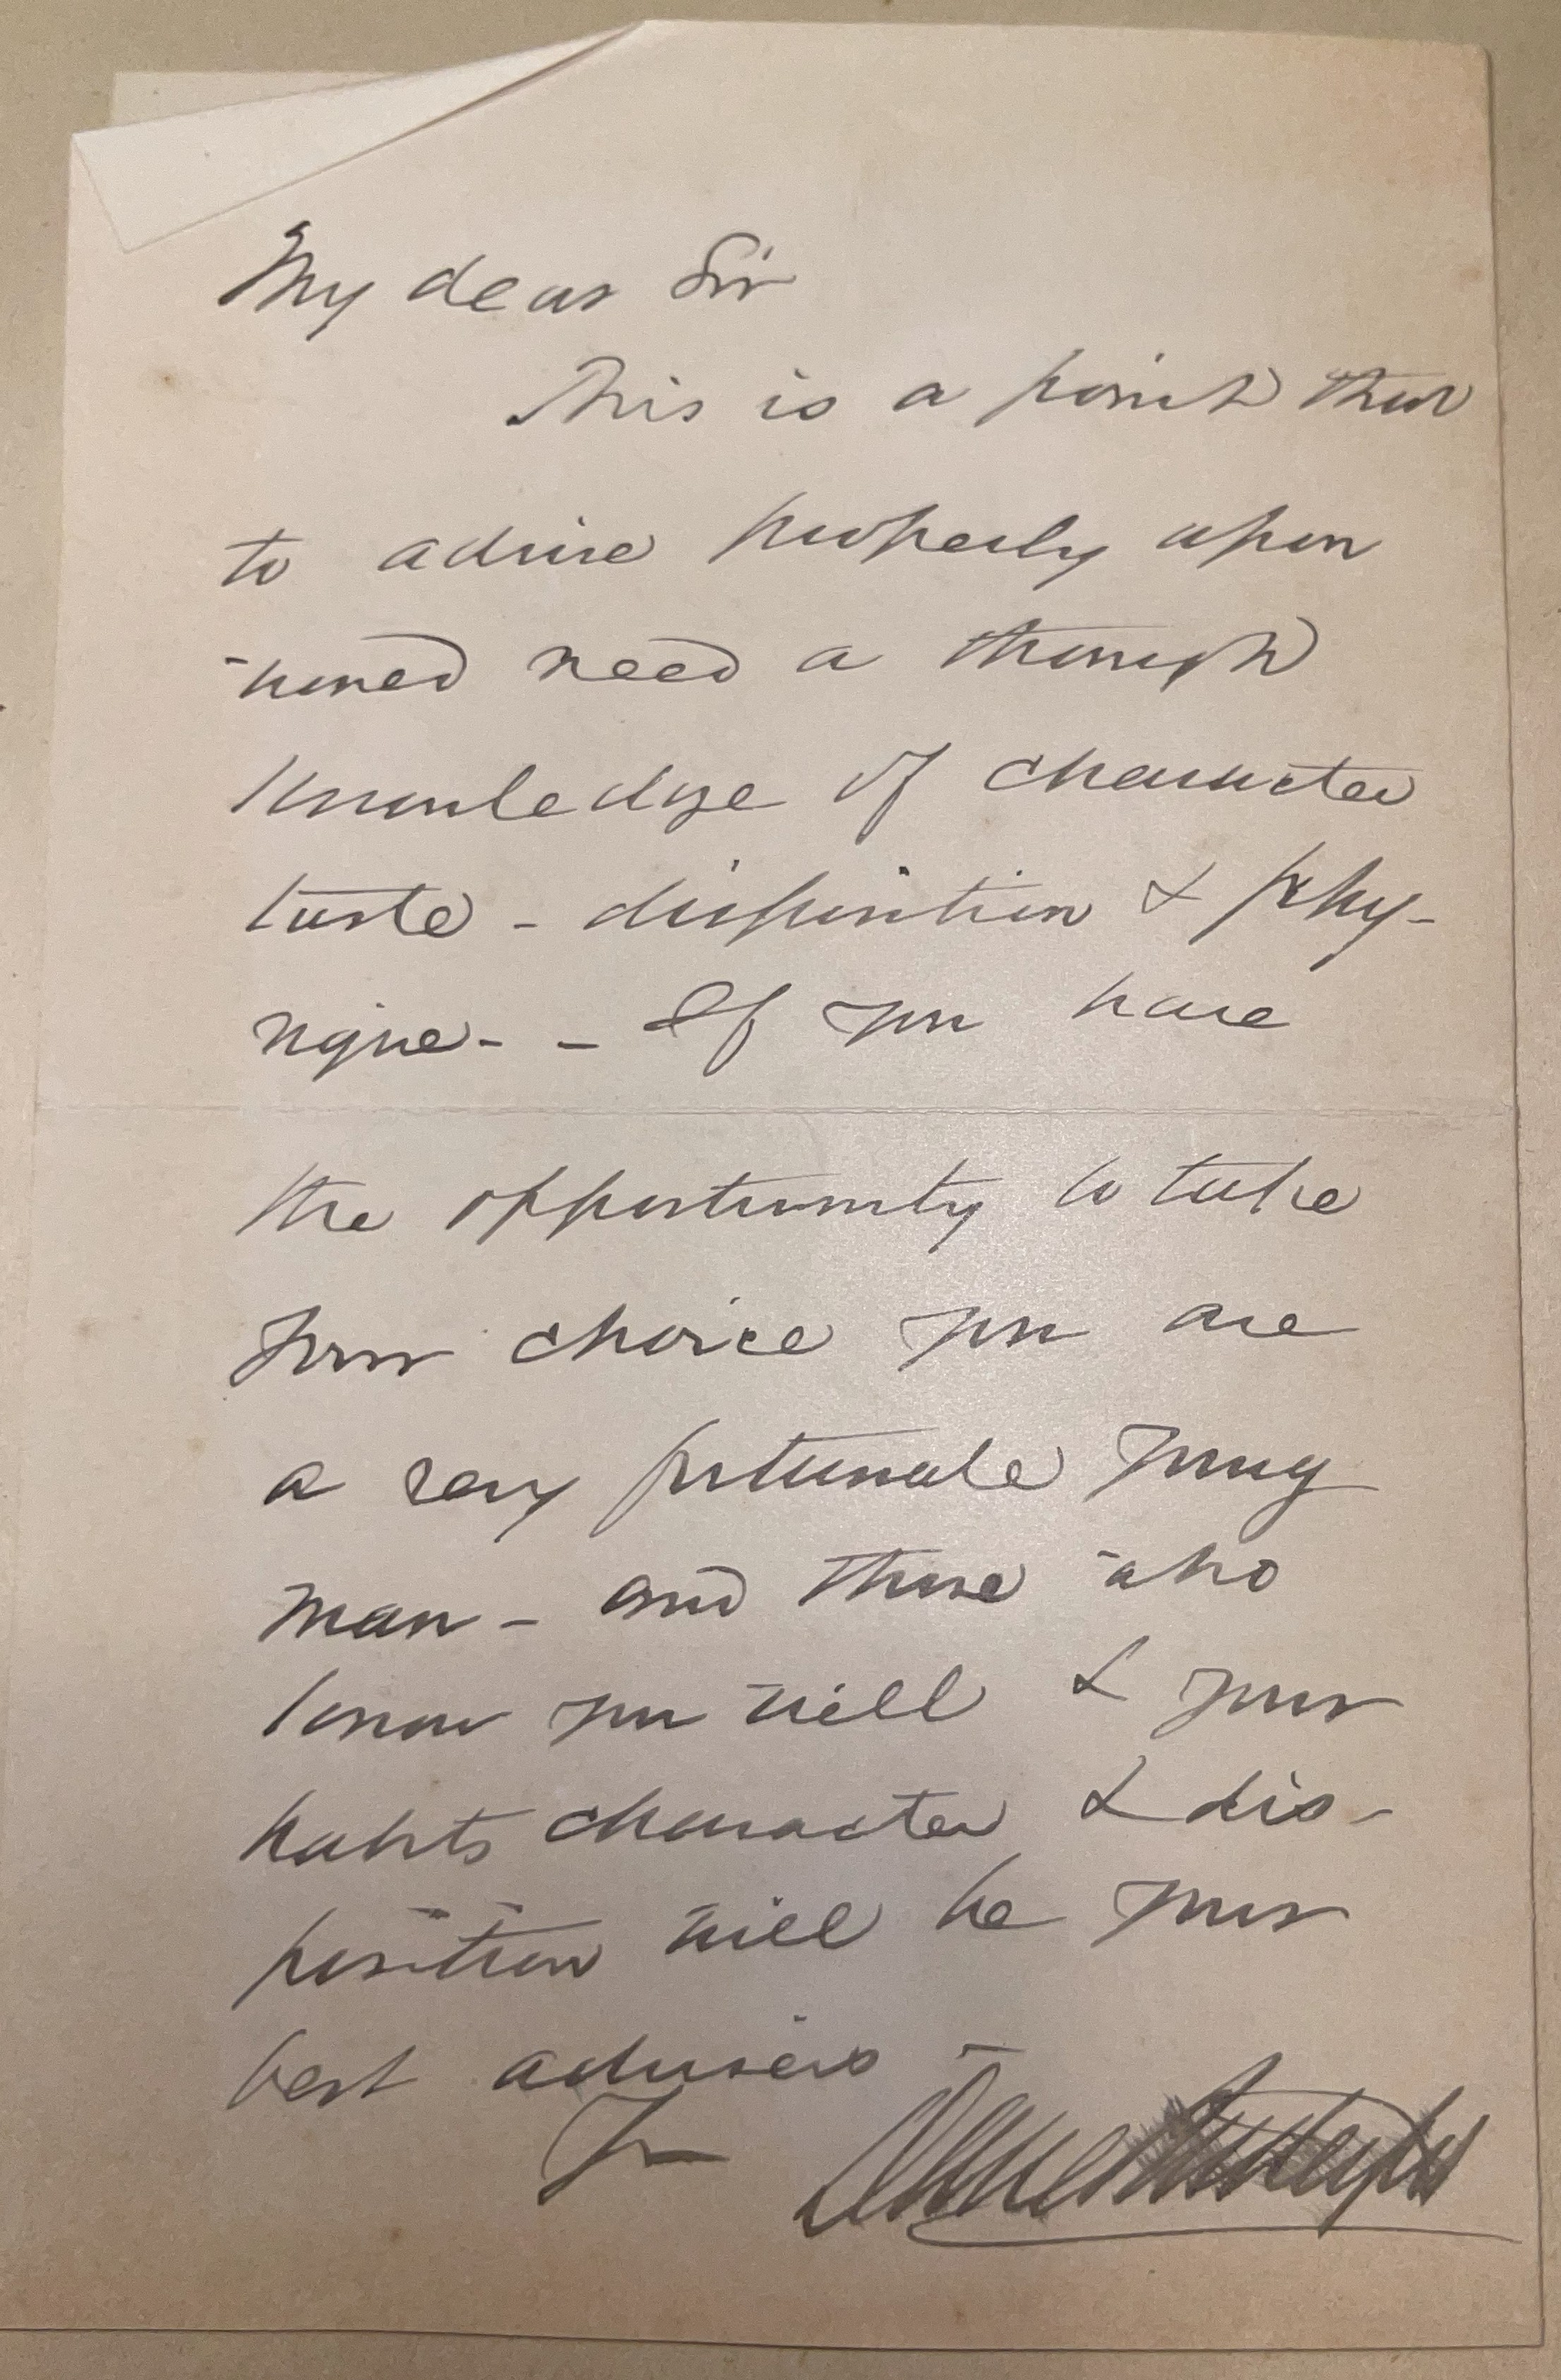 My dear Sir
This is a point that
to advise properly upon
would need a thorough
knowledge of character
taste - disposition & phy-
sique - - If you have
the opportunity to take
your choice you are
a very fortunate young
man - and those who
know you well & your
habits character & dis-
position will be your
best advisers -